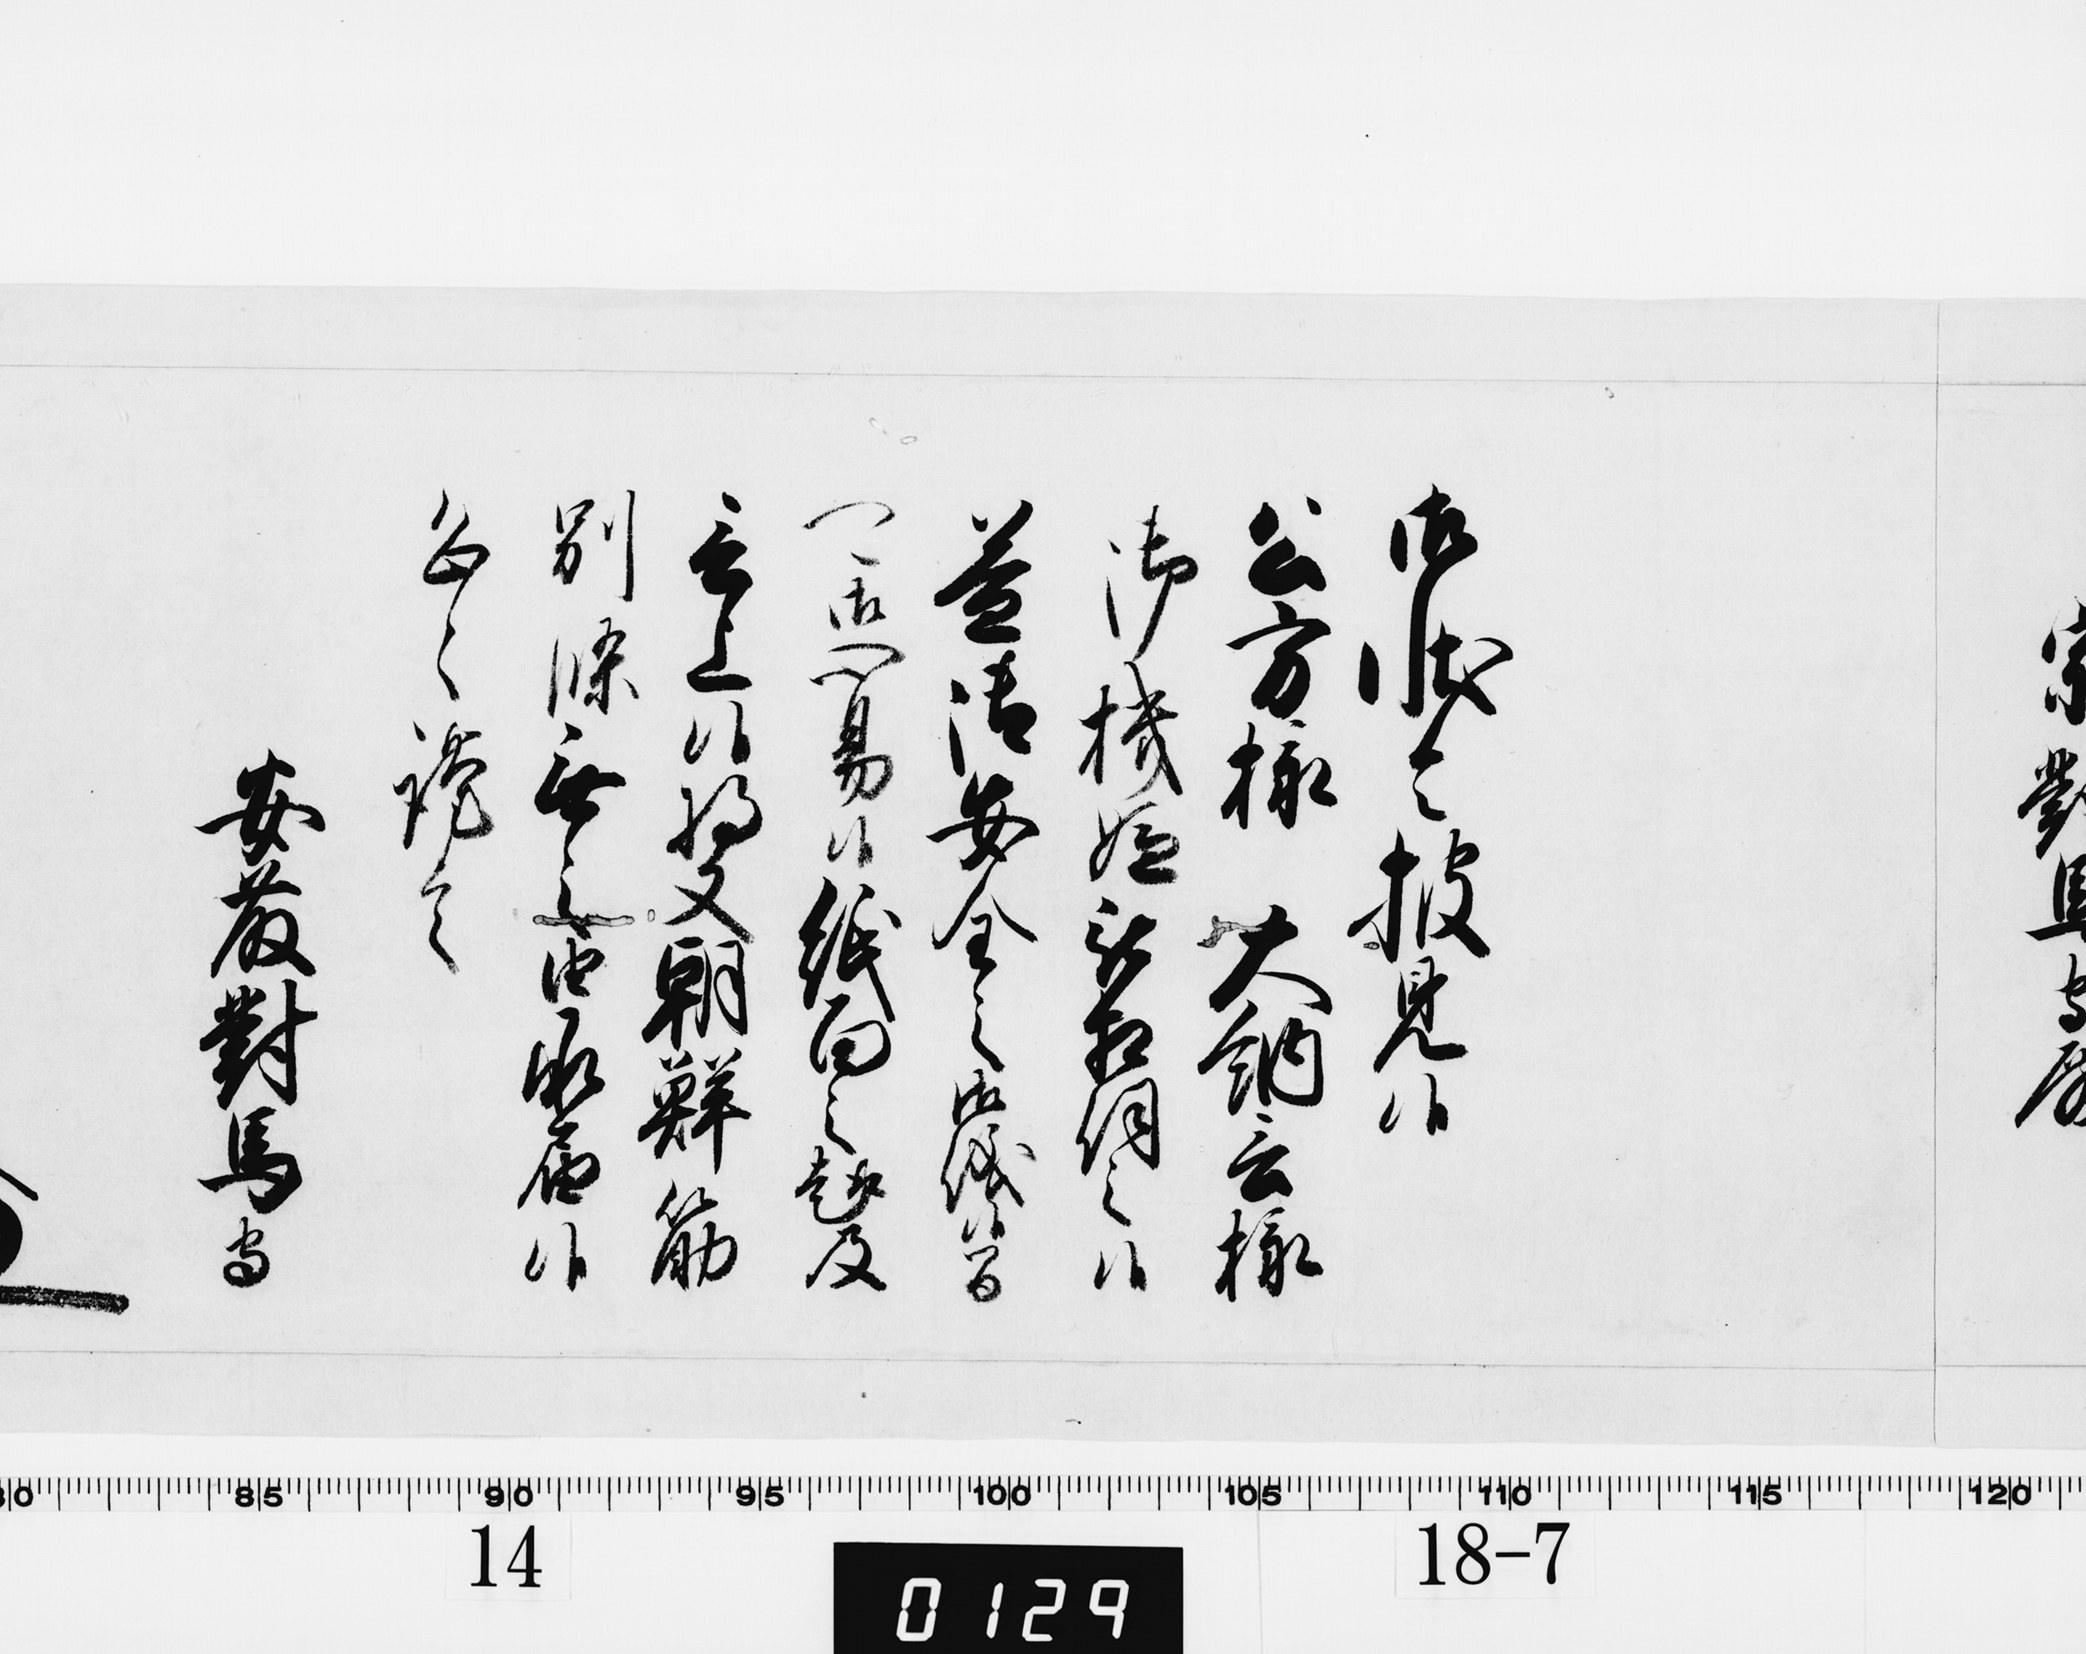 宗對馬守殿
御状令披見候
公方様 大納言様
御機嫌被相伺之候
益御安全之御儀候間
可御心易候紙面之趣及
言上候将又朝鮮筋
別條無之由承届候
恐々謹言
安藤對馬守
80 85 90 95 100 105 110 115 120
14 18-7
0129